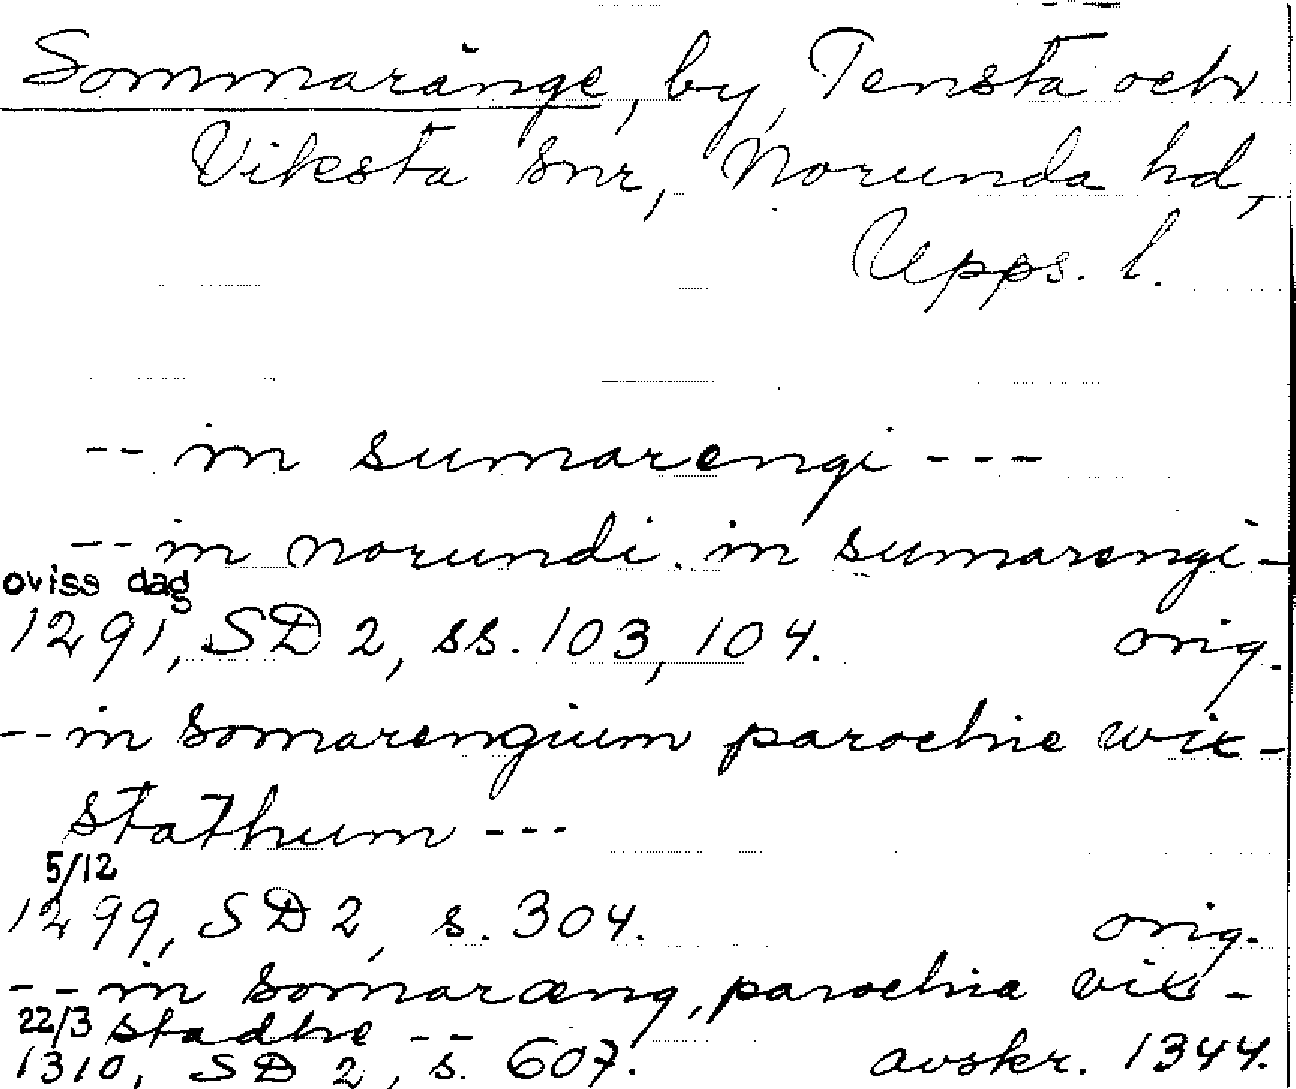 Sommaränge, by, Tensta och
Viksta snr, Norunda hd,
Upps. l.
-- in sumarengi ---
-- in norundi. in sumarengi -
oviss dag
1291, SD 2, ss. 103, 104. orig.
-- in somarengium parochie wix-
stathum ---
5/12
1299, SD 2, s. 304. orig.
-- in somaræng, parochia vix-
22/3 stadhe --
1310, SD 2, s. 607. avskr. 1344.